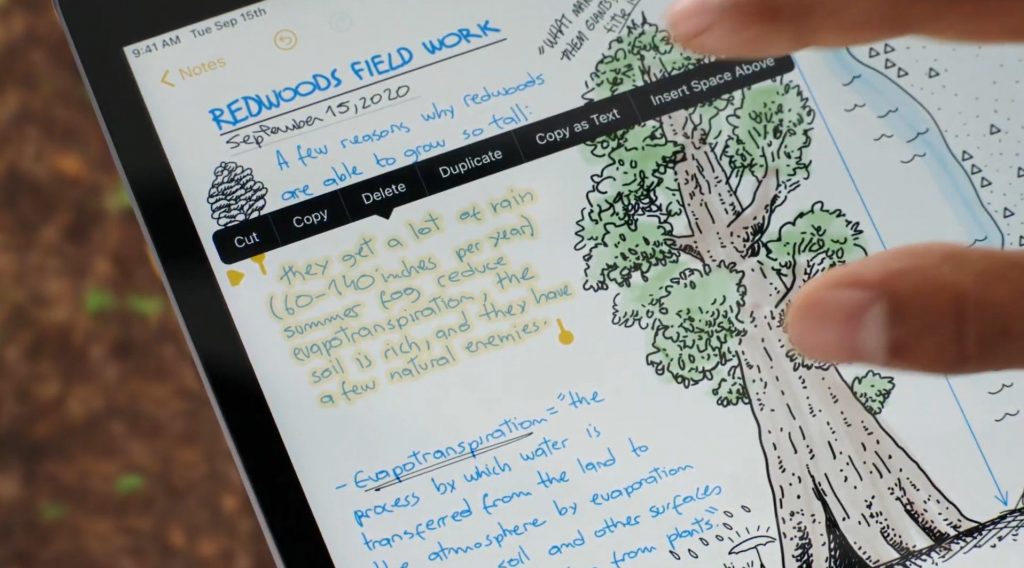 9:41 AM Tue Sep 15th
Notes
REDWOODS FIELD WORK
September 15, 2020
"WHAT
THEM GIANTS
title
A few reasons why redwoods
are able to grow so tall:
Cut Copy Delete Duplicate Copy as Text Insert Space Above
they get a lot of rain
(60-140 inches per year)
summer fog reduce
evapotranspiration, the
soil is rich, and they have
a few natural enemies.
- Evapotranspiration = "the
process by which water is
transferred from the land to
the atmosphere by evaporation
soil and other surfaces
from plants."